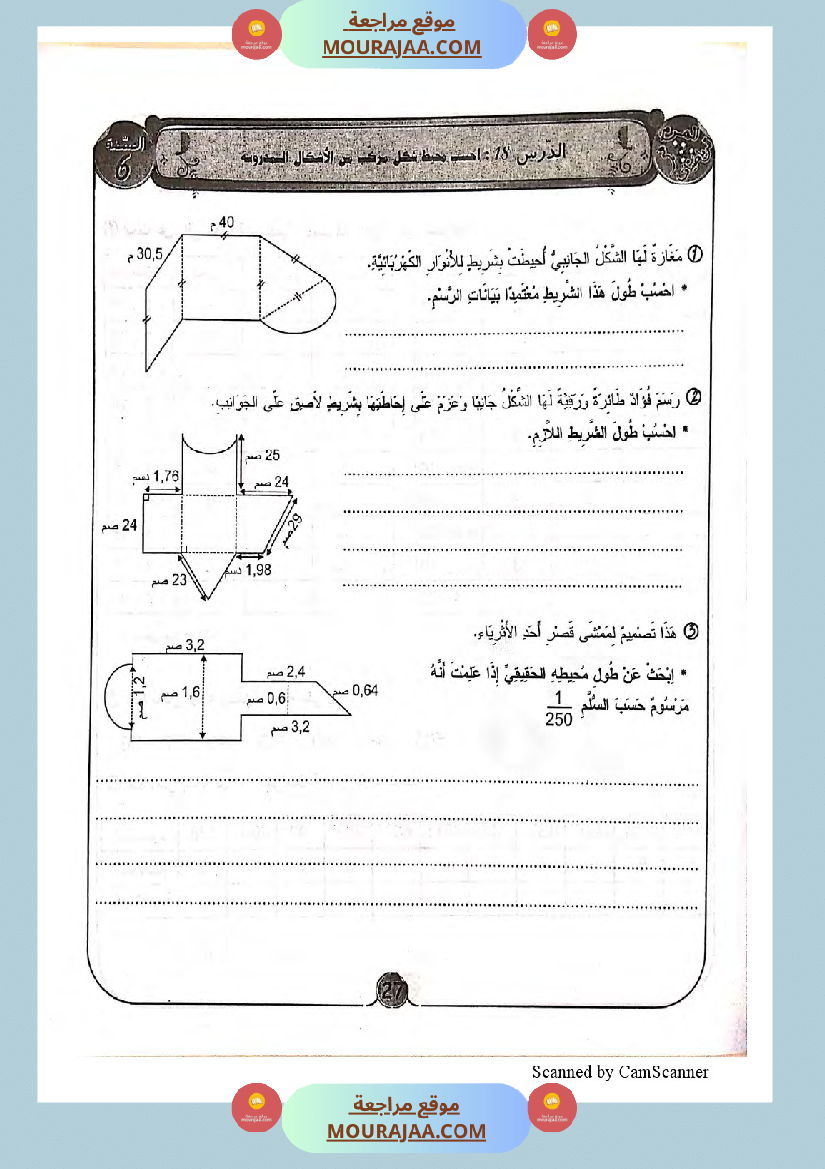 موقع مراجعة
MOURAJAA.COM
السنة 6
الدّرس 18 : احسب محيط شكل مركب من الأشكال المدروسة
① مَغَازَةٌ لَهَا الشَّكْلُ الجَانِبِيُّ أُحِيطَتْ بِشَرِيطٍ لِلأَنْوَارِ الكَهْرُبَائِيَّةِ.
* احْسُبْ طُولَ هَذَا الشَّرِيطِ مُعْتَمِدًا بَيَانَاتِ الرَّسْمِ.
40 م
30,5 م
② رَسَمَ فُؤَادٌ طَائِرَةً وَرَقِيَّةً لَهَا الشَّكْلُ جَانِبًا وَعَزَمَ عَلَى إِحَاطَتِهَا بِشَرِيطٍ لاَصِقٍ عَلَى الجَوَانِبِ.
* احْسُبْ طُولَ الشَّرِيطِ اللاَّزِمِ.
25 صم
1,76 دسم
24 صم
24 صم
29 صم
1,98 دسم
23 صم
③ هَذَا تَصْمِيمٌ لِمَمْشَى قَصْرِ أَحَدِ الأَثْرِيَاءِ.
* اِبْحَثْ عَنْ طُولِ مُحِيطِهِ الحَقِيقِيِّ إِذَا عَلِمْتَ أَنَّهُ
مَرْسُومٌ حَسَبَ السُّلَّمِ 1/250
3,2 صم
2,4 صم
1,2 صم
1,6 صم
0,6 صم
0,64 صم
3,2 صم
27
Scanned by CamScanner
موقع مراجعة
MOURAJAA.COM